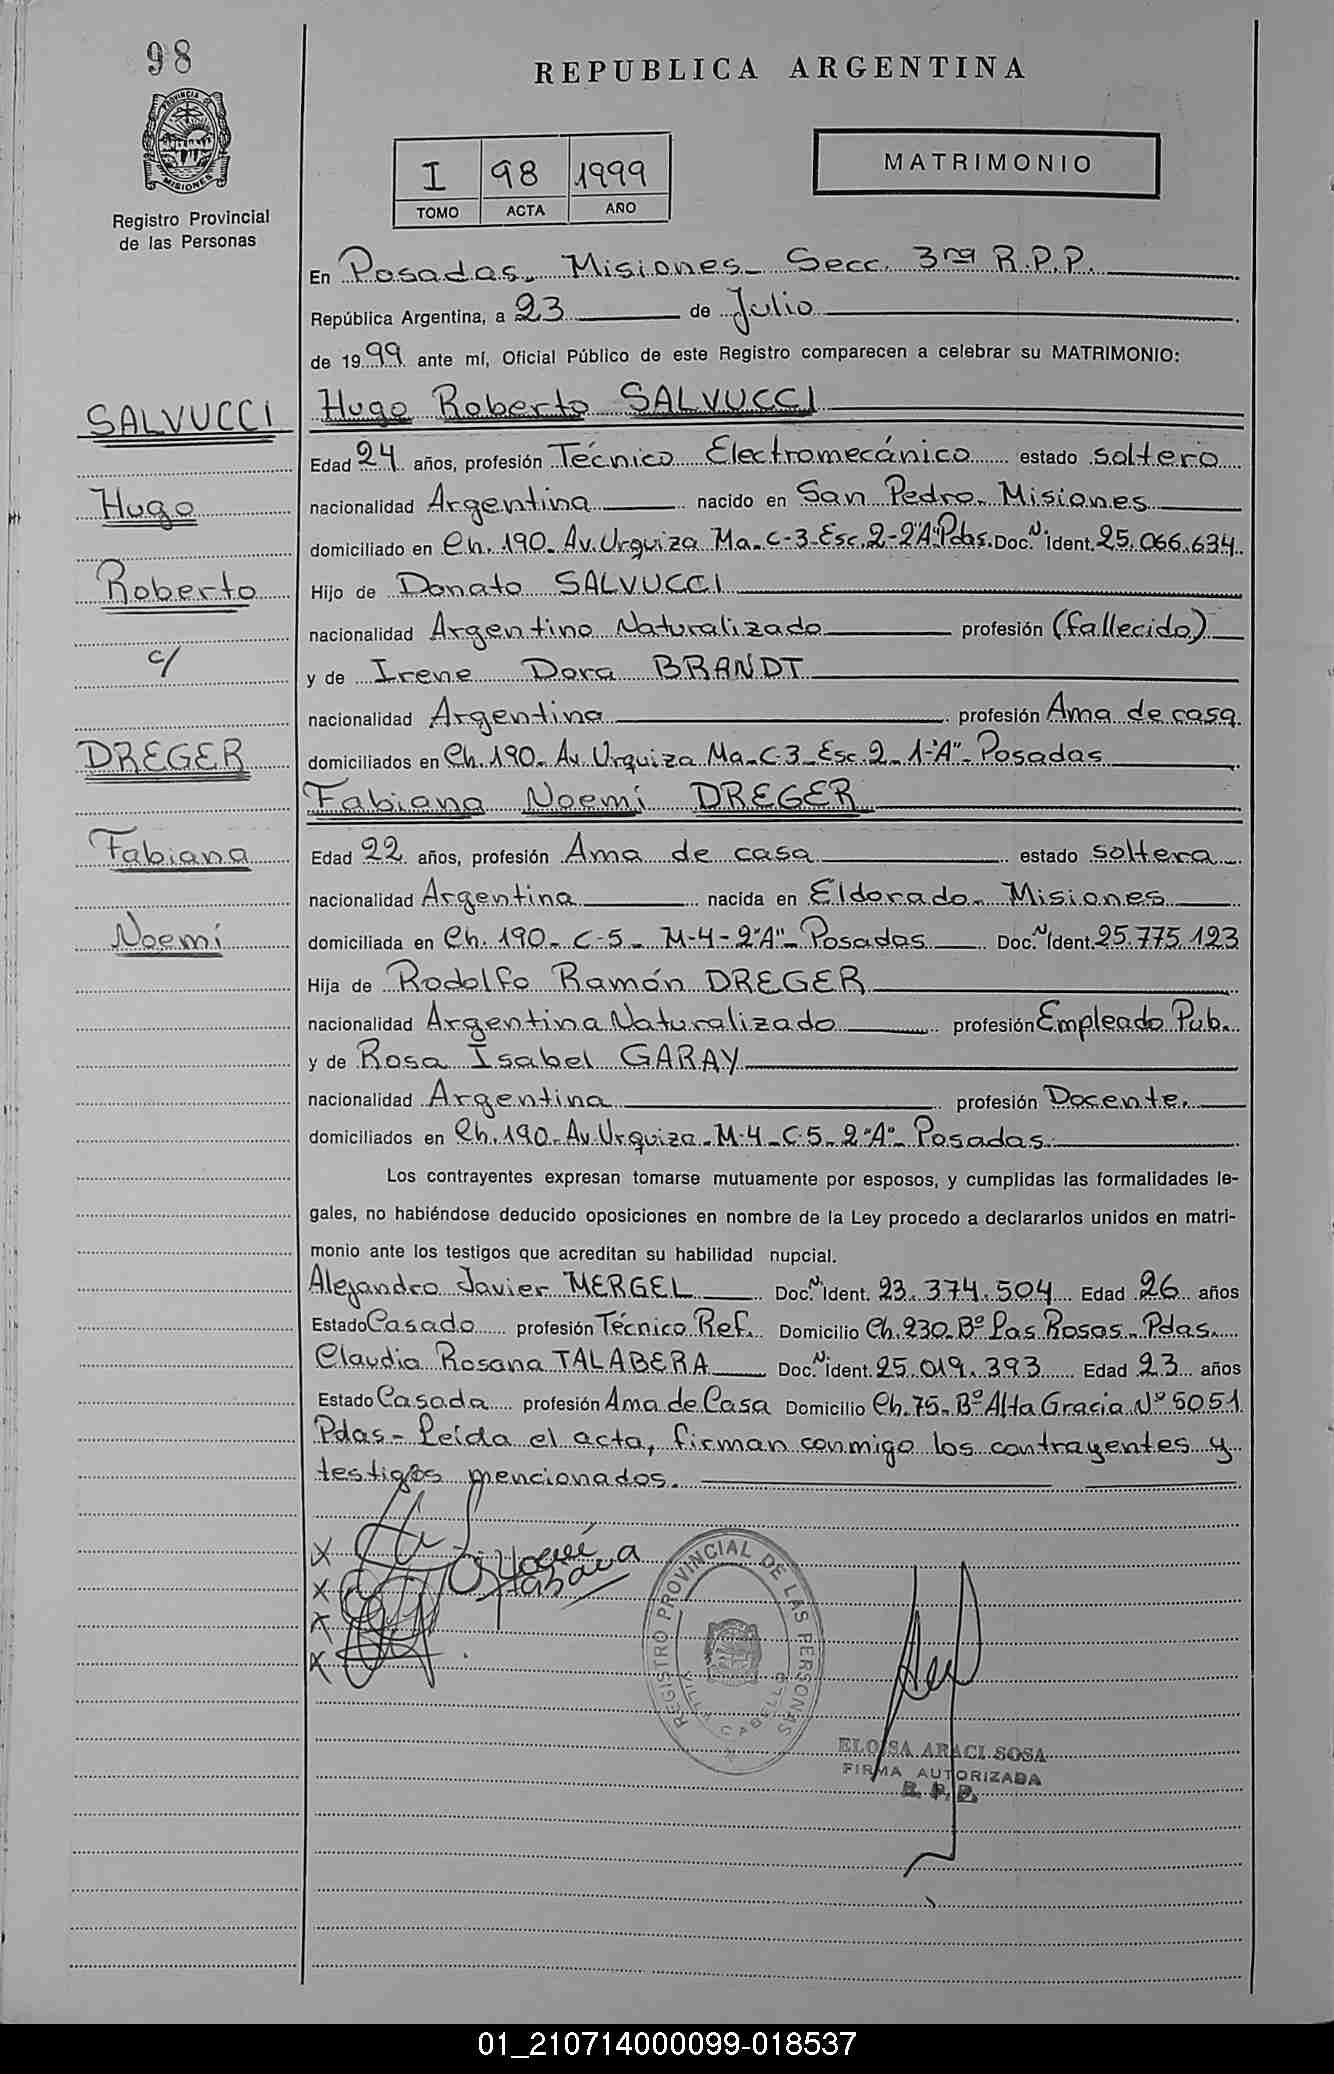 98
REPUBLICA ARGENTINA
PROVINCIA DE MISIONES
Registro Provincial
de las Personas
I 98 1999
TOMO ACTA AÑO
MATRIMONIO
En Posadas- Misiones- Secc. 3ra R.P.P.
República Argentina, a 23 de Julio
de 1999 ante mí, Oficial Público de este Registro comparecen a celebrar su MATRIMONIO:
SALVUCCI
Hugo Roberto SALVUCCI
Edad 24 años, profesión Técnico Electromecánico estado soltero
Hugo
nacionalidad Argentina nacido en San Pedro- Misiones
domiciliado en Ch. 190- Av. Urquiza Ma- C-3- Esc. 2- 2"A" Pdas. Doc. N ident. 25.066.634
Roberto
Hijo de Donato SALVUCCI
nacionalidad Argentino Naturalizado profesión (fallecido)
c/
y de Irene Dora BRANDT
nacionalidad Argentina profesión Ama de casa
DREGER
domiciliados en Ch. 190- Av. Urquiza Ma- C-3- Esc. 2- 1-"A"- Posadas
Fabiana Noemí DREGER
Fabiana
Edad 22 años, profesión Ama de casa estado soltera
nacionalidad Argentina nacida en Eldorado- Misiones
Noemí
domiciliada en Ch. 190- C-5- M-4-2"A"- Posadas Doc. N Ident. 25.775.123
Hija de Rodolfo Ramón DREGER
nacionalidad Argentina Naturalizado profesión Empleado Pub.
y de Rosa Isabel GARAY
nacionalidad Argentina profesión Docente.
domiciliados en Ch. 190- Av. Urquiza- M-4- C-5- 2"A"- Posadas
Los contrayentes expresan tomarse mutuamente por esposos, y cumplidas las formalidades le-
gales, no habiéndose deducido oposiciones en nombre de la Ley procedo a declararlos unidos en matri-
monio ante los testigos que acreditan su habilidad nupcial.
Alejandro Javier MERGEL Doc. N Ident. 23.374.504 Edad 26 años
Estado Casado profesión Técnico Ref. Domicilio Ch. 230- Bº Las Rosas- Pdas.
Claudia Rosana TALABERA Doc. N ident. 25.019.393 Edad 23 años
Estado Casada profesión Ama de Casa Domicilio Ch. 75- Bº Alta Gracia Nº 5051
Pdas- Leída el acta, firman conmigo los contrayentes y
testigos mencionados.
X
X Noemí
Fabiana
X
X
REGISTRO PROVINCIAL DE LAS PERSONAS
VILLA CABELLO
ELOISA ARACI SOSA
FIRMA AUTORIZADA
R. P. P.
01_210714000099-018537